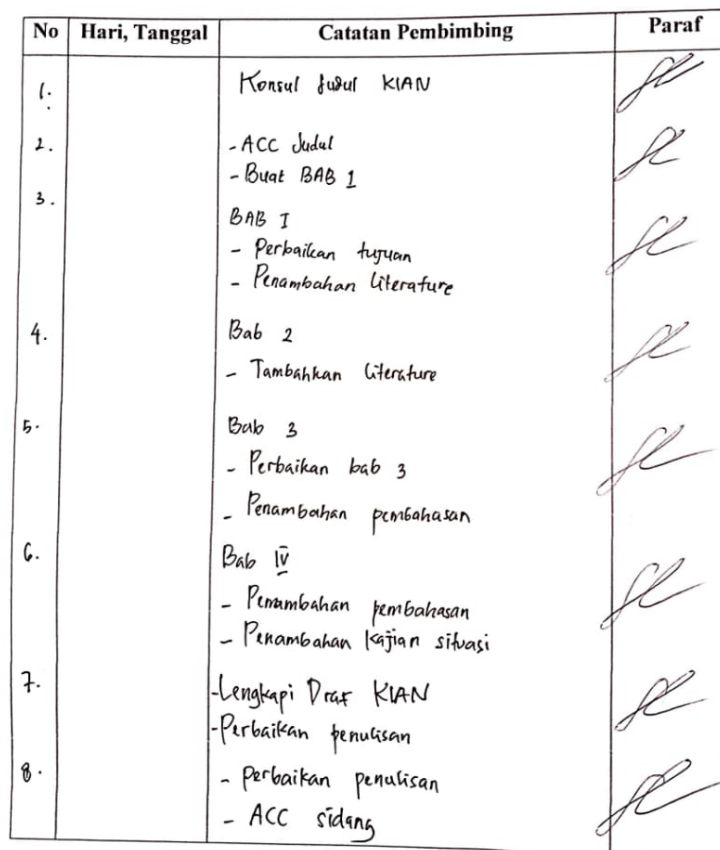 No Hari, Tanggal Catatan Pembimbing Paraf
1. Konsul Judul KIAN
2. - ACC Judul
- Buat BAB 1
3. BAB I
- Perbaikan tujuan
- Penambahan literature
4. Bab 2
- Tambahkan literature
5. Bab 3
- Perbaikan bab 3
- Penambahan pembahasan
6. Bab IV
- Penambahan pembahasan
- Penambahan kajian situasi
7. -Lengkapi Draf KIAN
-Perbaikan penulisan
8. - perbaikan penulisan
- ACC sidang